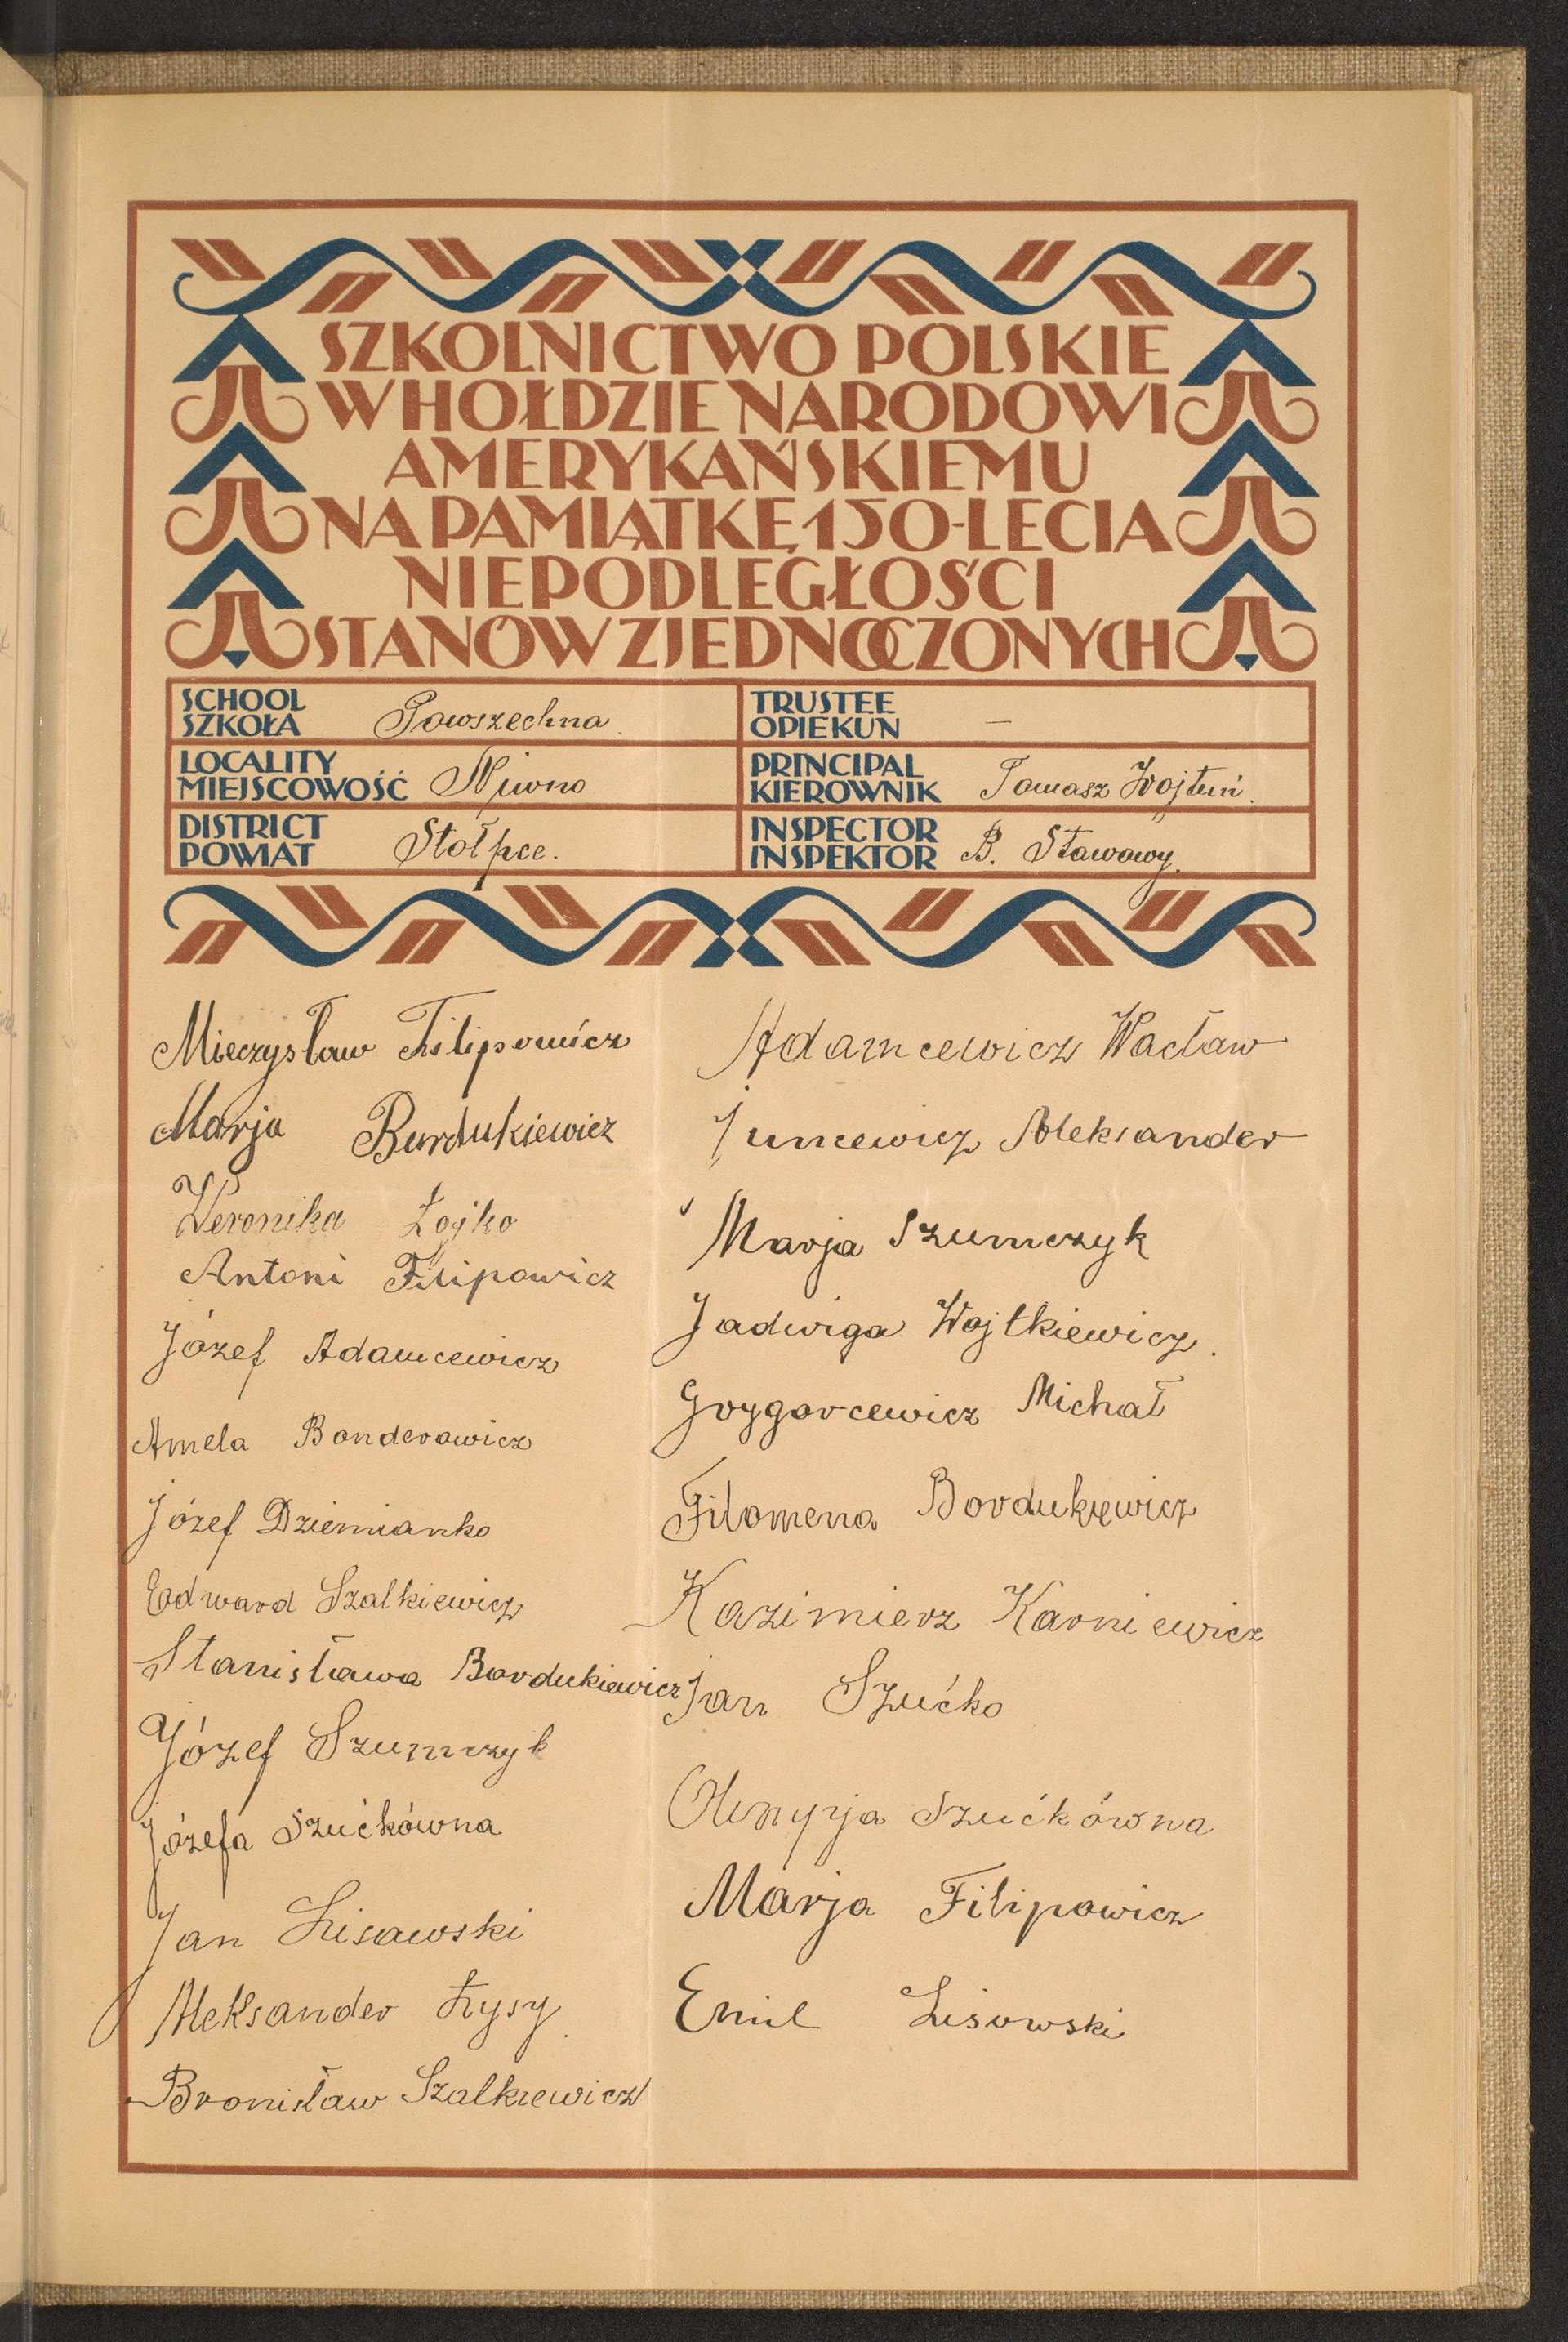 SZKOLNICTWO POLSKIE
W HOŁDZIE NARODOWI
AMERYKAŃSKIEMU
NA PAMIĄTKĘ 150-LECIA
NIEPODLEGŁOŚCI
STANÓW ZJEDNOCZONYCH
SCHOOL
SZKOŁA Powszechna
TRUSTEE
OPIEKUN —
LOCALITY
MIEJSCOWOŚĆ Niwno
PRINCIPAL
KIEROWNIK Tomasz Wojtuń.
DISTRICT
POWIAT Stołpce.
INSPECTOR
INSPEKTOR B. Stawowy.
Mieczysław Filipowicz
Marja Burdukiewicz
Weronika Łojko
Antoni Filipowicz
Józef Adamcewicz
Amela Bonderowicz
Józef Dziemianko
Edward Szalkiewicz
Stanisława Bordukiewicz
Józef Szumczyk
Józefa Szućkówna
Jan Lisawski
Aleksander Łysy.
Bronisław Szalkiewicz
Adamcewicz Wacław
Juncewicz Aleksander
Marja Szumczyk
Jadwiga Wojtkiewicz.
Grygorcewicz Michał
Filomena Bordukiewicz
Kazimierz Karniewicz
Jan Szućko
Szućkówna
Marja Filipowicz
Emil Lisowski